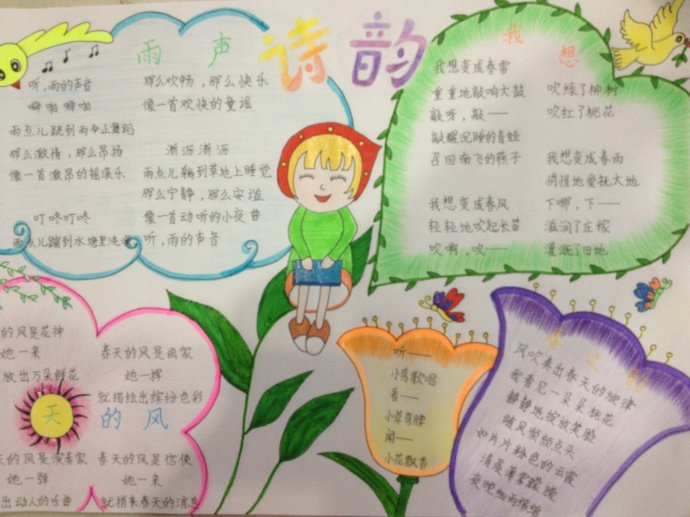 诗韵
雨声
听,雨的声音
噼啪 噼啪
雨点儿跳到雨伞上舞蹈
那么激情,那么昂扬
像一首激昂的摇滚乐
叮咚叮咚
雨点儿蹦到水塘里洗澡
那么欢畅,那么快乐
像一首欢快的童谣
淅沥淅沥
雨点儿躺到草地上睡觉
那么宁静,那么安谧
像一首动听的小夜曲
听,雨的声音
我想
我想变成春雷
重重地敲响大鼓
敲呀,敲——
敲醒沉睡的青蛙
召回南飞的燕子
我想变成春风
轻轻地吹起长笛
吹啊,吹——
吹绿了柳树
吹红了桃花
我想变成春雨
悄悄地爱抚大地
下哪,下——
滋润了庄稼
灌溉了田地
天的风
的风是花神
她一来
放出万朵鲜花
的风是演奏家
她一弹
出动人的乐曲
春天的风是画家
她一挥
就描绘出缤纷色彩
春天的风是信使
她一来
就捎来春天的消息
听——
小鸟歌唱
看——
小草弯腰
闻——
小花飘香
春之
风吹来出春天的旋律
我看见一朵朵桃花
静静地绽放笑脸
随风频频点头
如片片粉色的云霞
清晨薄雾朦胧
夜晚细雨绵绵